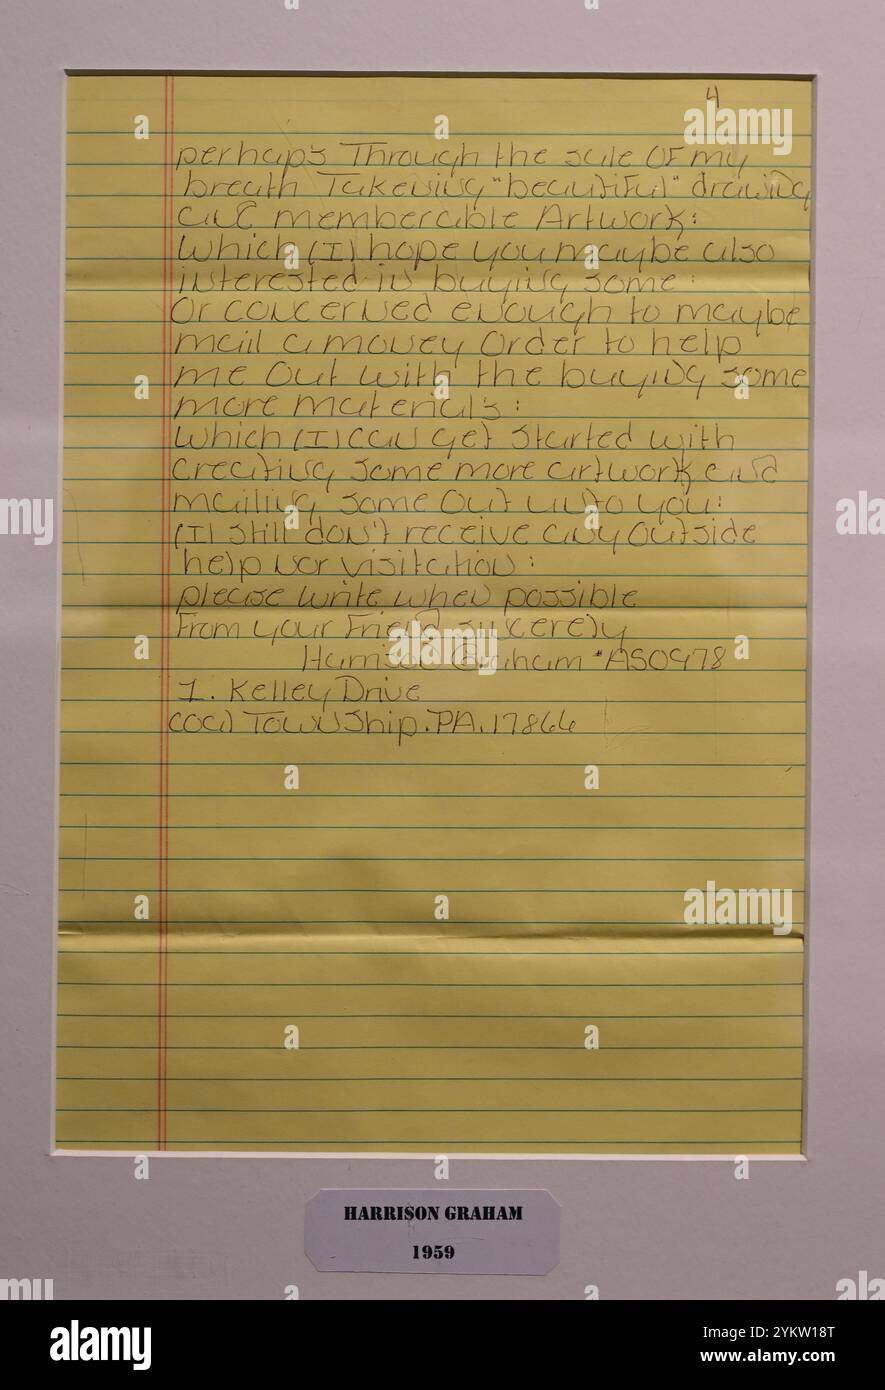 4
perhap's Through the sale OF my
breath Takening "beautiful" drawing
and memberable Artwork:
Which (I) hope you maybe also
interested in buying some:
Or concerned enough to maybe
mail a money Order to help
me Out with the buying some
more material's:
Which (I) can get started with
creating some more artwork and
mailing some Out unto you:
(I) still don't receive any Outside
help nor visitation:
please write when possible
From your Friend sincerely
Harrison Graham *AS0478
1. Kelley Drive
coal TownShip. PA. 17866
HARRISON GRAHAM
1959
alamy
Image ID: 2YKW18T
www.alamy.com